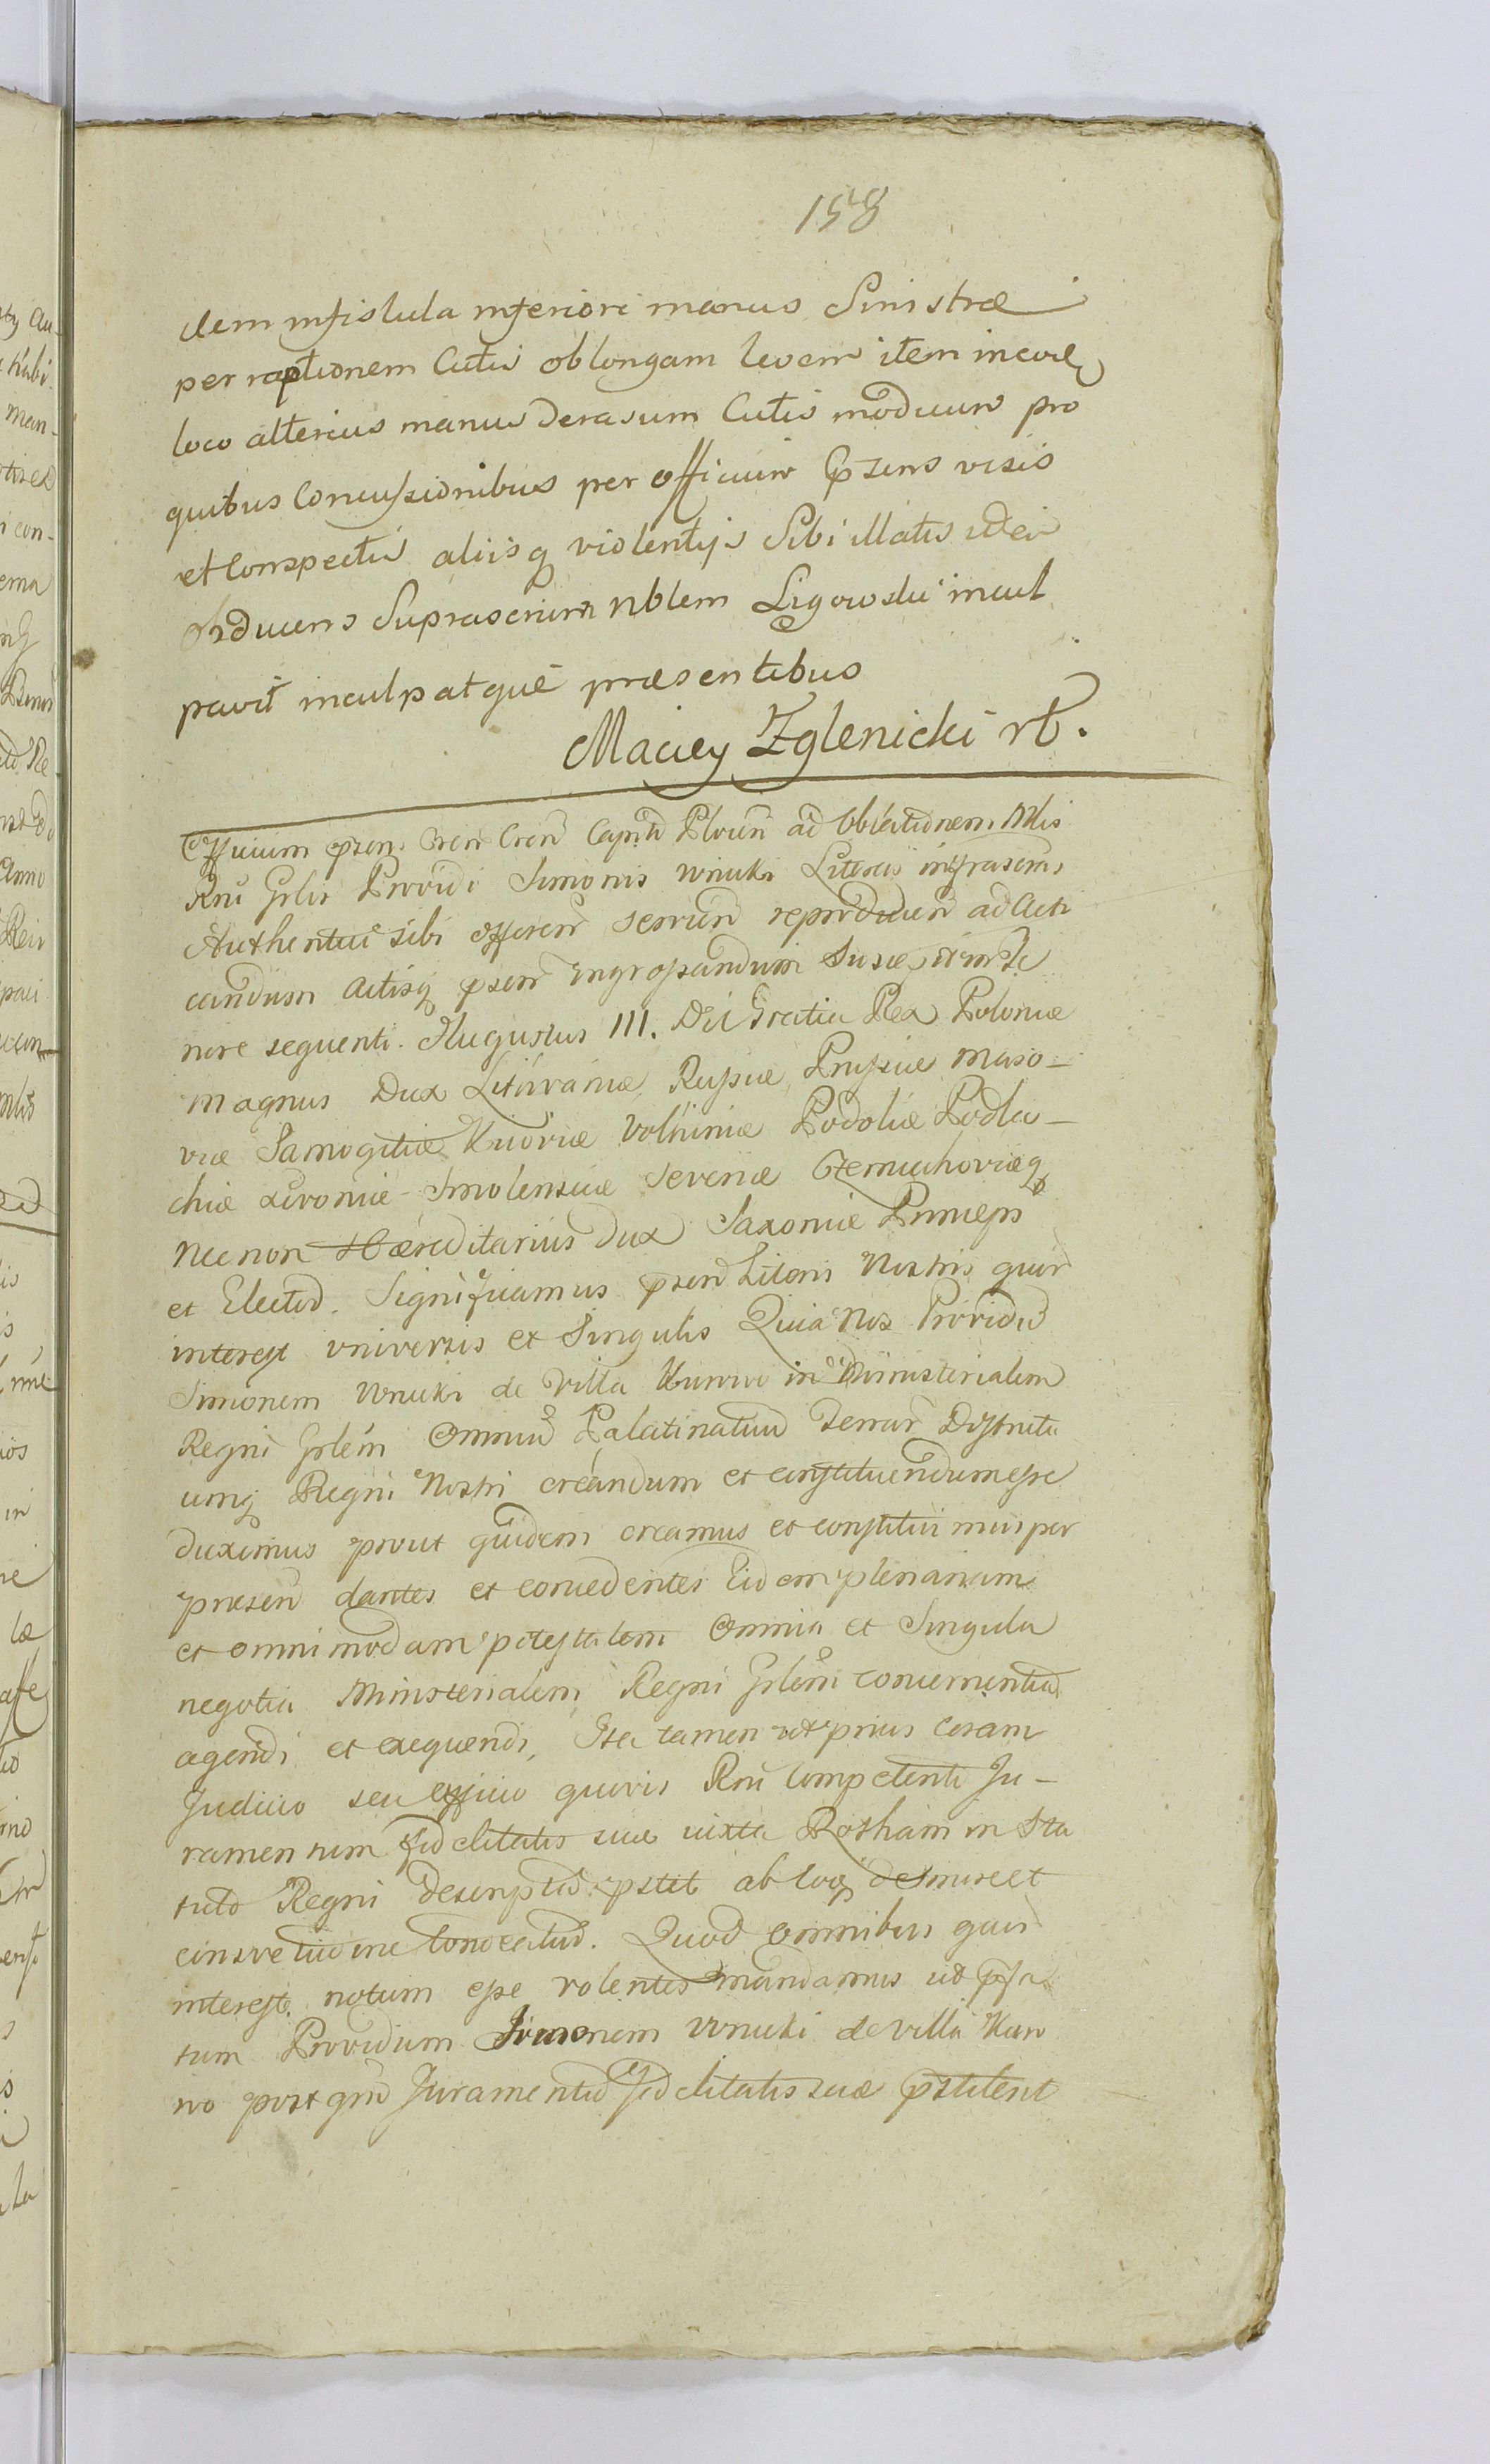 158
dem in fistula inferiori manus Sinistræ
per raptionem Cutis oblongam levem item in eode
loco alterius manus derasum Cutis modicum pro
quibus Concussionibus per officium pzens visis
et Conspectis aliisq violentijs Sibi illatis idem
Suprascrium Nblem Ligowski incul
pavit inculpatque præsentibus
Maciey Zglenicki rt.
Officium pzens Cren Capit Plocen ad Oblationem Mlis
Rni Gnlis Providi Simonis Wnuki Literas infrascrips
Authenticas sibi offeren reproducen ad Acti
candum Actisq pzen Ingrossandum Suscepit
nore sequenti. Augustus III. Dei Gratia Rex Poloniæ
Magnus Dux Lithvaniæ, Russiæ, Prussiæ Maso-
viæ Samogitiæ Kiioviæ Volhiniæ Podoliæ Podla-
chiæ Livoniæ Smolensciæ Severiæ Czerniechoviæq
Necnon Hæreditarius Dux Saxoniæ Princeps
et Elector. Significamus pzen Literis Nostris quor
interest vniversis et Singulis Quia Nos Providu
Simonem Wnuki de Villa Kunwo in Ministerialem
Regni Gnlem Omniu Palatinatuu Terrar Districtu
umq Regni Nostri creandum et constituendum esse
duximus prout quidem creamus et constituimus per
præsen dantes et concedentes Eidem plenariam
et omnimodam potestatem Omnia et Singula
negotia Ministerialem Regni Gnlem concernentia
agendi et exequendi, Ita tamen ut prius Coram
Judicio seu officio quovis Rni Competenti Ju-
ramentum fidelitatis suæ iuxta Rotham in Sta
tuto Regni descriptu pstet ab loq de jure et
consvetudine Concertud. Quod Omnibus quor
interest. notum esse volentes mandamus ut pfa
tum Providum Simonem Wnuki de villa Kun
wo post qm Juramentu fidelitatis suæ pstiterit